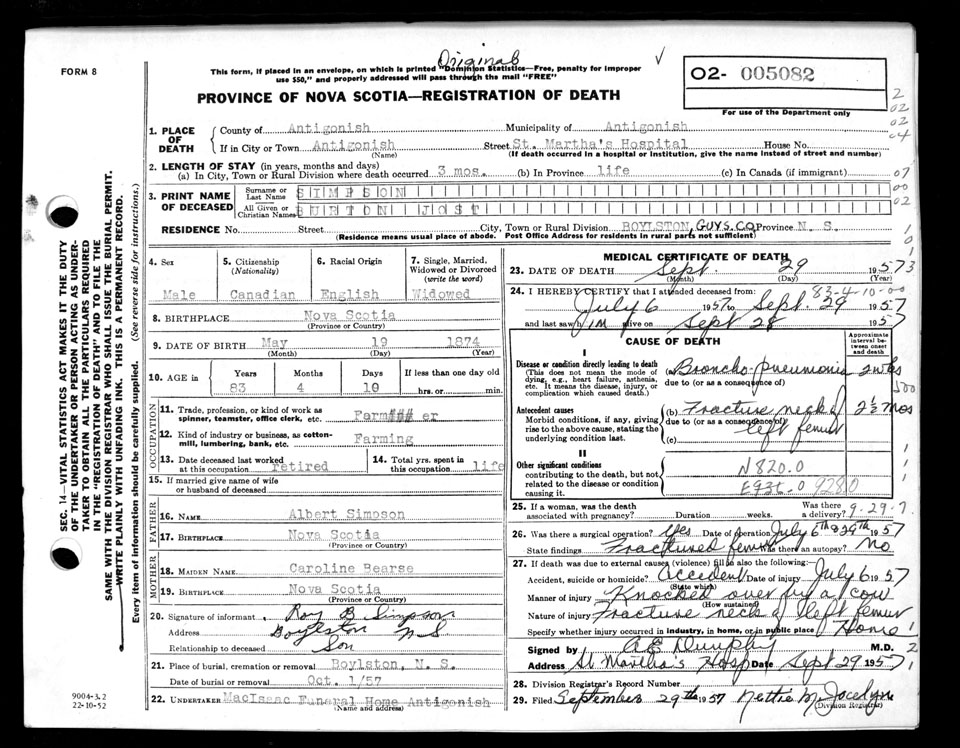 FORM 8
Original
This form, if placed in an envelope, on which is printed "Dominion Statistics—Free, penalty for improper
use $50," and properly addressed will pass through the mail "FREE"
PROVINCE OF NOVA SCOTIA—REGISTRATION OF DEATH
02- 005082
For use of the Department only
2
02
02
04
1. PLACE OF DEATH
County of Antigonish Municipality of Antigonish
If in City or Town Antigonish Street St. Martha's Hospital House No.
(Name) (If death occurred in a hospital or institution, give the name instead of street and number)
2. LENGTH OF STAY (in years, months and days)
(a) In City, Town or Rural Division where death occurred 3 mos. (b) In Province life (c) In Canada (if immigrant)
07
00
02
3. PRINT NAME OF DECEASED
Surname or Last Name SIMPSON
All Given or Christian Names BURTON JOST
RESIDENCE No. Street City, Town or Rural Division BOYLSTON, GUYS. CO. Province N. S.
(Residence means usual place of abode. Post Office Address for residents in rural parts not sufficient)
SEC. 14—VITAL STATISTICS ACT MAKES IT THE DUTY
OF THE UNDERTAKER OR PERSON ACTING AS UNDER-
TAKER TO OBTAIN ALL THE PARTICULARS REQUIRED
IN THE "REGISTRATION OF DEATH" AND TO FILE THE
SAME WITH THE DIVISION REGISTRAR WHO SHALL ISSUE THE BURIAL PERMIT.
WRITE PLAINLY WITH UNFADING INK. THIS IS A PERMANENT RECORD.
Every item of information should be carefully supplied. (See reverse side for instructions.)
4. Sex
Male
5. Citizenship
(Nationality)
Canadian
6. Racial Origin
English
7. Single, Married, Widowed or Divorced
(write the word)
Widowed
8. BIRTHPLACE Nova Scotia
(Province or Country)
9. DATE OF BIRTH May 19 1874
(Month) (Day) (Year)
10. AGE in
Years Months Days If less than one day old
83 4 10 hrs. or min.
OCCUPATION
11. Trade, profession, or kind of work as
spinner, teamster, office clerk, etc. Farm### er
12. Kind of industry or business, as cotton-
mill, lumbering, bank, etc. Farming
13. Date deceased last worked
at this occupation retired
14. Total yrs. spent in
this occupation life
15. If married give name of wife
or husband of deceased
FATHER
16. NAME Albert Simpson
17. BIRTHPLACE Nova Scotia
(Province or Country)
MOTHER
18. MAIDEN NAME Caroline Hearse
19. BIRTHPLACE Nova Scotia
(Province or Country)
20. Signature of informant Roy B Simpson
Address Boylston N S
Relationship to deceased Son
21. Place of burial, cremation or removal Boylston, N. S.
Date of burial or removal Oct. 1/57
22. UNDERTAKER MacIsaac Funeral Home Antigonish
(Name and address)
9004-3.2
22-10-52
MEDICAL CERTIFICATE OF DEATH
23. DATE OF DEATH Sept. 29 1957
(Month) (Day) (Year)
83-4-10-00
24. I HEREBY CERTIFY that I attended deceased from:
July 6 1957 to Sept. 29 1957
and last saw him alive on Sept 28 1957
CAUSE OF DEATH
Approximate interval between onset and death
I
Disease or condition directly leading to death
(This does not mean the mode of
dying, e.g., heart failure, asthenia,
etc. It means the disease, injury, or
complication which caused death.)
(a) Broncho-pneumonia 2 wks
due to (or as a consequence of)
Antecedent causes
Morbid conditions, if any, giving
rise to the above cause, stating the
underlying condition last.
(b) Fracture neck of 2½ mos
due to (or as a consequence of)
left femur
(c)
II
Other significant conditions
contributing to the death, but not
related to the disease or condition
causing it.
N820.0
E936.0 9280
25. If a woman, was the death
associated with pregnancy? Duration weeks. Was there a delivery?
9-29-7
26. Was there a surgical operation? Yes Date of operation July 6th & 29th 1957
State findings Fractured femur Was there an autopsy? No
27. If death was due to external causes (violence) fill in also the following:
Accident, suicide or homicide? Accident Date of injury July 6 1957
(State which)
Manner of injury Knocked over by a cow
(How sustained)
Nature of injury Fracture neck of left femur
Specify whether injury occurred in industry, in home, or in public place Home
Signed by A E Dunphy M.D.
Address St Martha's Hosp Date Sept 29 1957
28. Division Registrar's Record Number
29. Filed September 29th 1957 Nettie M. Jocelyn
(Division Registrar)